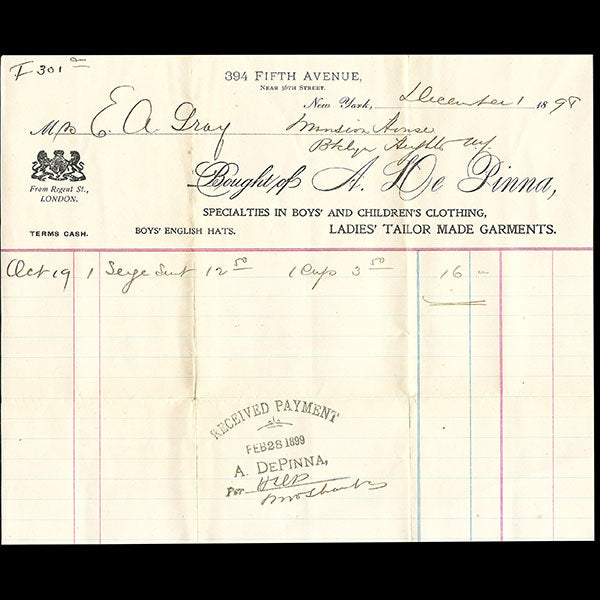 I 301
394 FIFTH AVENUE,
NEAR 36TH STREET.
New York, December 1 1898
Mrs E. A. Gray
Mansion House
Bklyn Heights NY
Bought of A. De Pinna,
From Regent St.,
LONDON.
SPECIALTIES IN BOYS' AND CHILDREN'S CLOTHING,
TERMS CASH. BOYS' ENGLISH HATS. LADIES' TAILOR MADE GARMENTS.
Oct 19 1 Serge Suit 12 50 1 Cap 3 50 16
RECEIVED PAYMENT
FEB 28 1899
A. DEPINNA,
Per